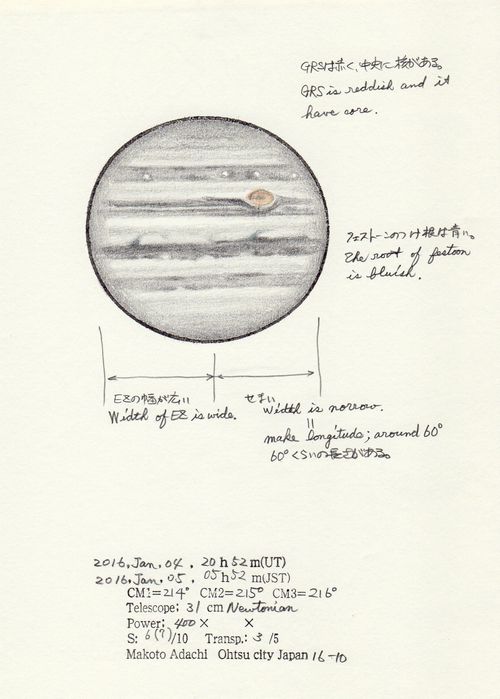 GRSは赤く、中央に核がある。
GRS is reddish and it
have core.
フェストーンのつけ根は青い。
The root of festoon
is bluish.
EZの幅が広い
Width of EZ is wide.
せまい
Width is norrow.
=
make longitude; around 60°
60°くらいの長さがある。
2016, Jan, 04, 20 h 52 m(UT)
2016, Jan, 05, 05 h 52 m(JST)
CM1=214° CM2=215° CM3=216°
Telescope; 31 cm Newtonian
Power; 400 × ×
S: 6(7)/10 Transp.: 3 /5
Makoto Adachi Ohtsu city Japan 16-10